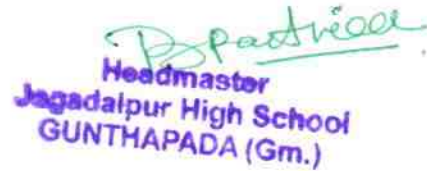 Headmaster
Jagadalpur High School
GUNTHAPADA (Gm.)